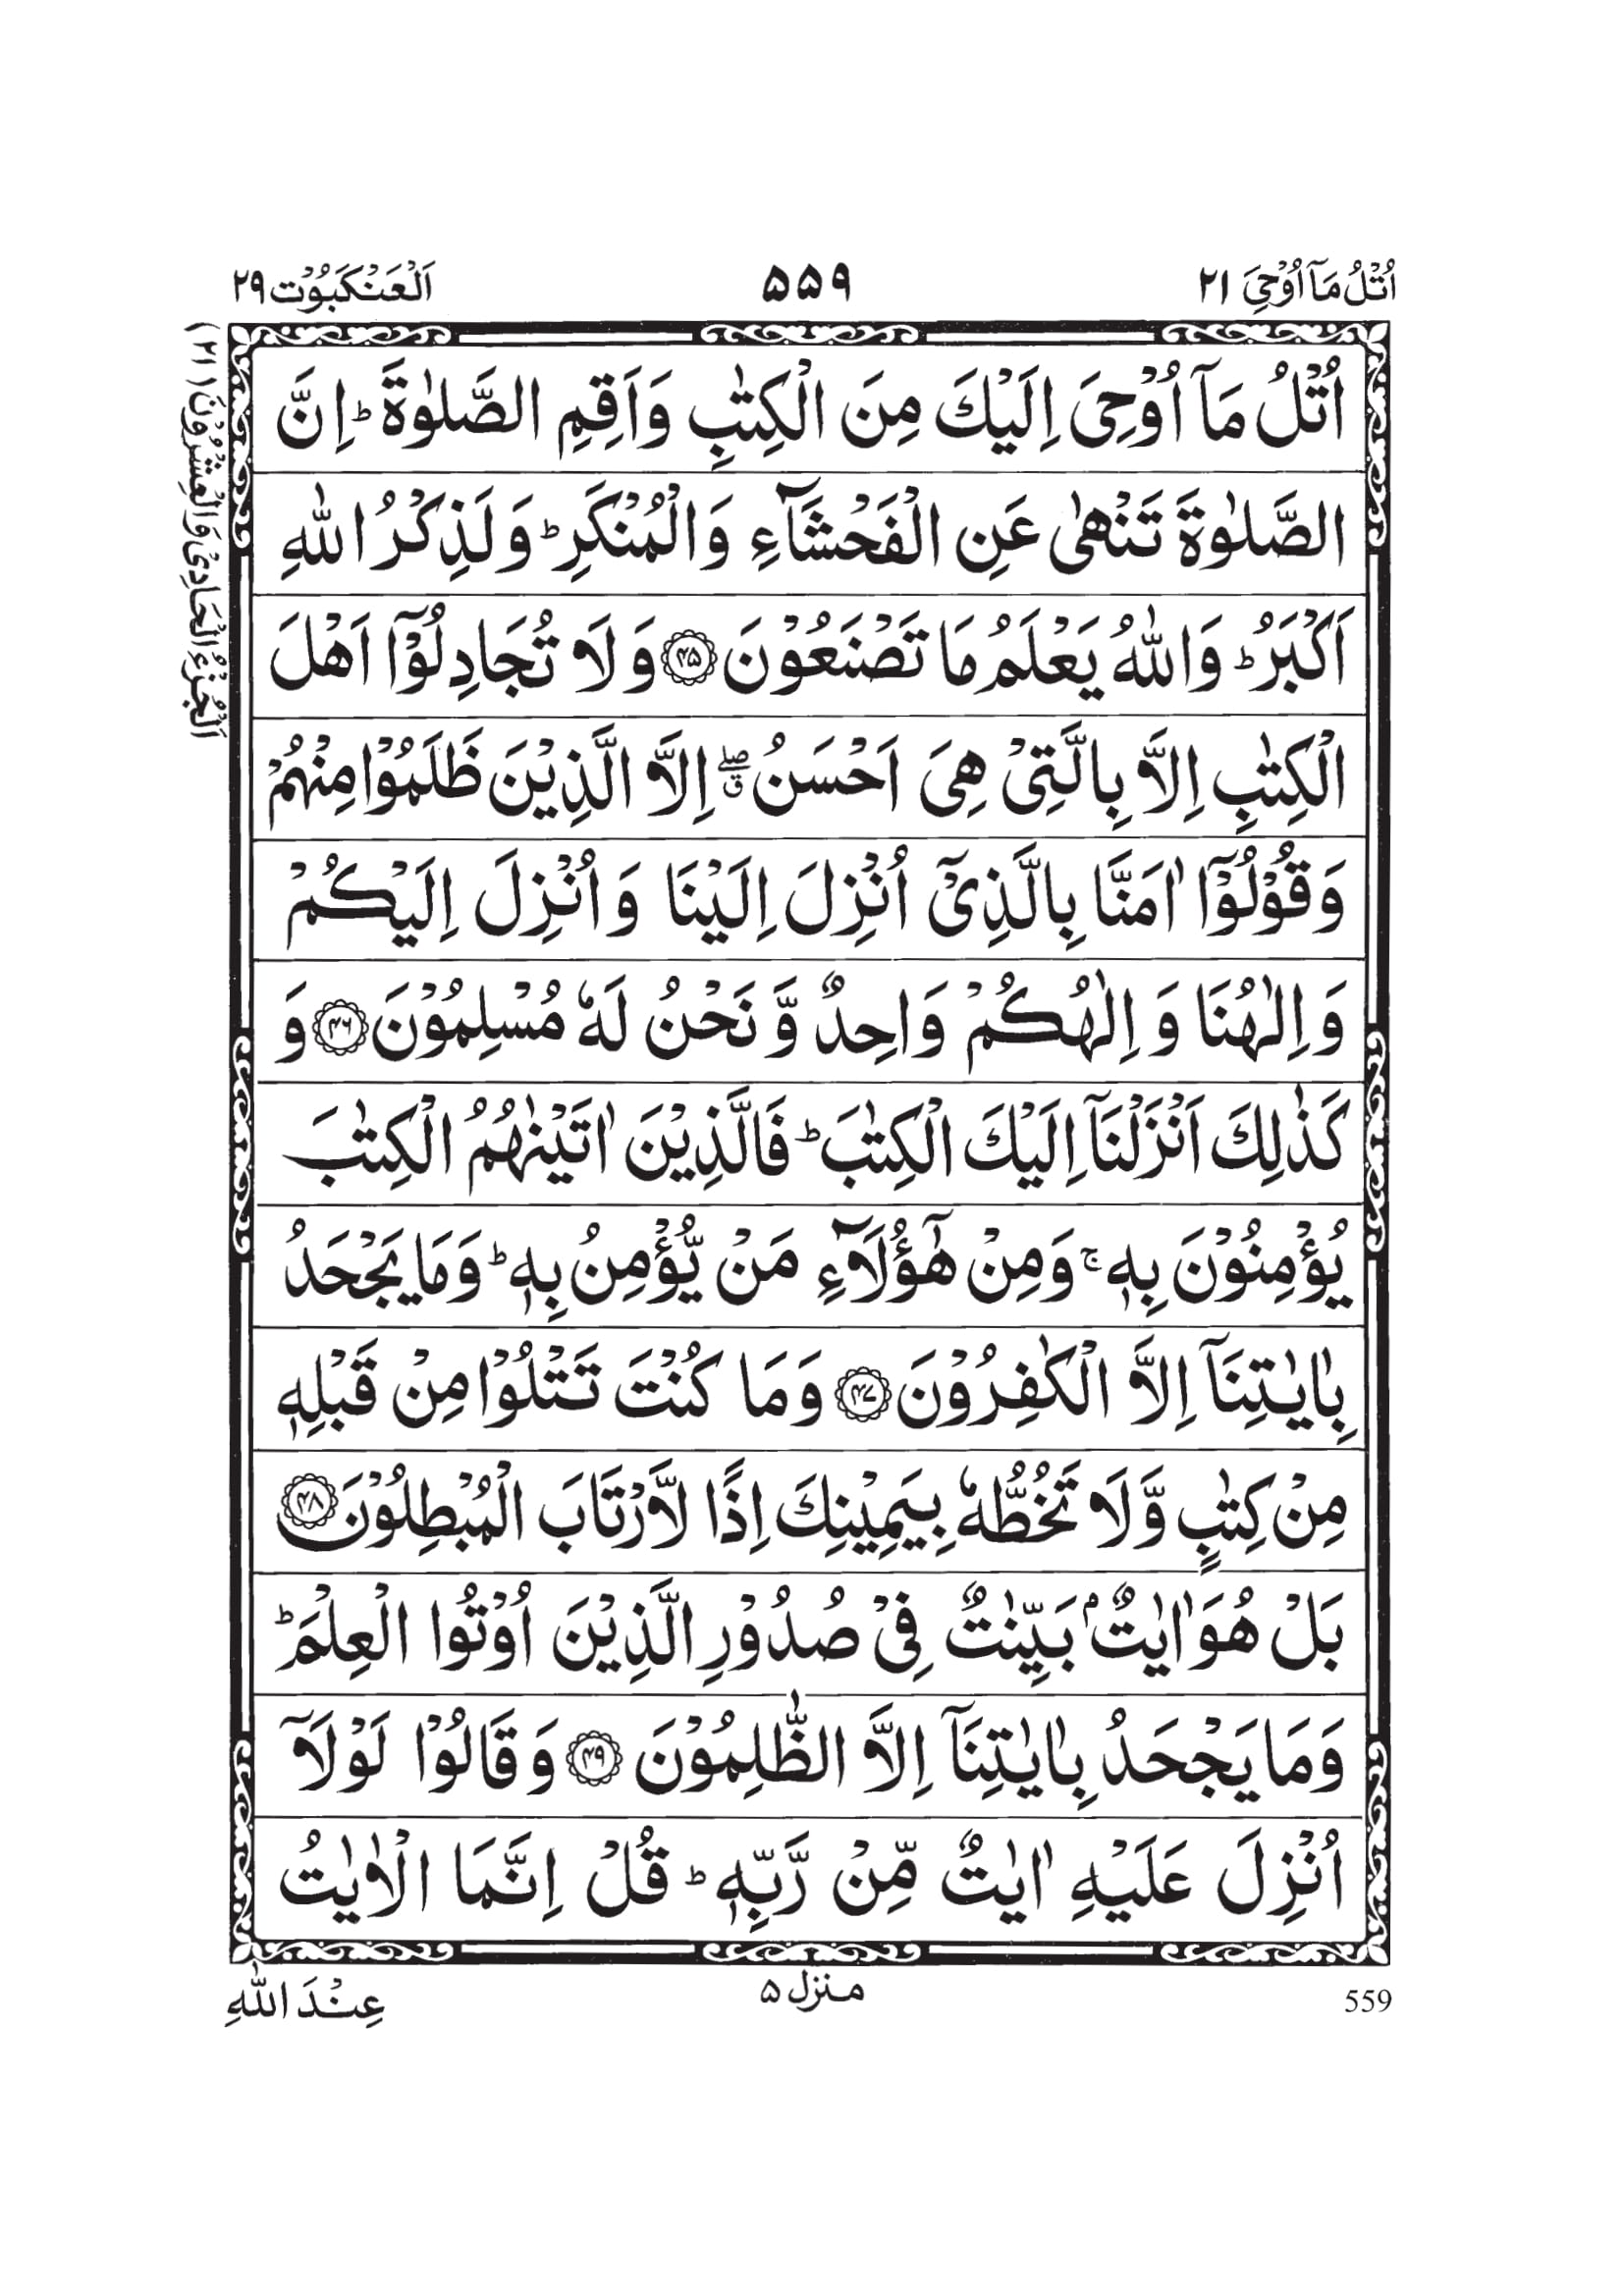 اُتْلُ مَاۤ اُوْحِیَ ٢١
٥٥٩
اَلْعَنْكَبُوْت ٢٩
اَلْجُزْءُ الْحَادِیْ وَالْعِشْرُوْنَ (٢١)
اُتْلُ مَاۤ اُوْحِیَ اِلَیْكَ مِنَ الْكِتٰبِ وَاَقِمِ الصَّلٰوةَ ؕ اِنَّ
الصَّلٰوةَ تَنْهٰی عَنِ الْفَحْشَآءِ وَالْمُنْكَرِ ؕ وَلَذِكْرُ اللّٰهِ
اَكْبَرُ ؕ وَاللّٰهُ یَعْلَمُ مَا تَصْنَعُوْنَ ﴿۴۵﴾ وَلَا تُجَادِلُوْۤا اَهْلَ
الْكِتٰبِ اِلَّا بِالَّتِیْ هِیَ اَحْسَنُ ۖۗ اِلَّا الَّذِیْنَ ظَلَمُوْا مِنْهُمْ
وَقُوْلُوْۤا اٰمَنَّا بِالَّذِیْۤ اُنْزِلَ اِلَیْنَا وَاُنْزِلَ اِلَیْكُمْ
وَاِلٰهُنَا وَاِلٰهُكُمْ وَاحِدٌ وَّنَحْنُ لَهٗ مُسْلِمُوْنَ ﴿۴۶﴾ وَ
كَذٰلِكَ اَنْزَلْنَاۤ اِلَیْكَ الْكِتٰبَ ؕ فَالَّذِیْنَ اٰتَیْنٰهُمُ الْكِتٰبَ
یُؤْمِنُوْنَ بِهٖ ۚ وَمِنْ هٰۤؤُلَآءِ مَنْ یُّؤْمِنُ بِهٖ ؕ وَمَا یَجْحَدُ
بِاٰیٰتِنَاۤ اِلَّا الْكٰفِرُوْنَ ﴿۴۷﴾ وَمَا كُنْتَ تَتْلُوْا مِنْ قَبْلِهٖ
مِنْ كِتٰبٍ وَّلَا تَخُطُّهٗ بِیَمِیْنِكَ اِذًا لَّارْتَابَ الْمُبْطِلُوْنَ ﴿۴۸﴾
بَلْ هُوَ اٰیٰتٌۢ بَیِّنٰتٌ فِیْ صُدُوْرِ الَّذِیْنَ اُوْتُوا الْعِلْمَ ؕ
وَمَا یَجْحَدُ بِاٰیٰتِنَاۤ اِلَّا الظّٰلِمُوْنَ ﴿۴۹﴾ وَقَالُوْا لَوْلَاۤ
اُنْزِلَ عَلَیْهِ اٰیٰتٌ مِّنْ رَّبِّهٖ ؕ قُلْ اِنَّمَا الْاٰیٰتُ
عِنْدَ اللّٰهِ
منزل ۵
559